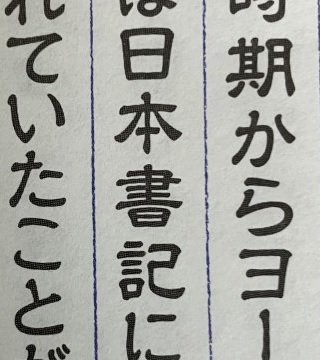 時期からヨー
は日本書記に
れていたことが